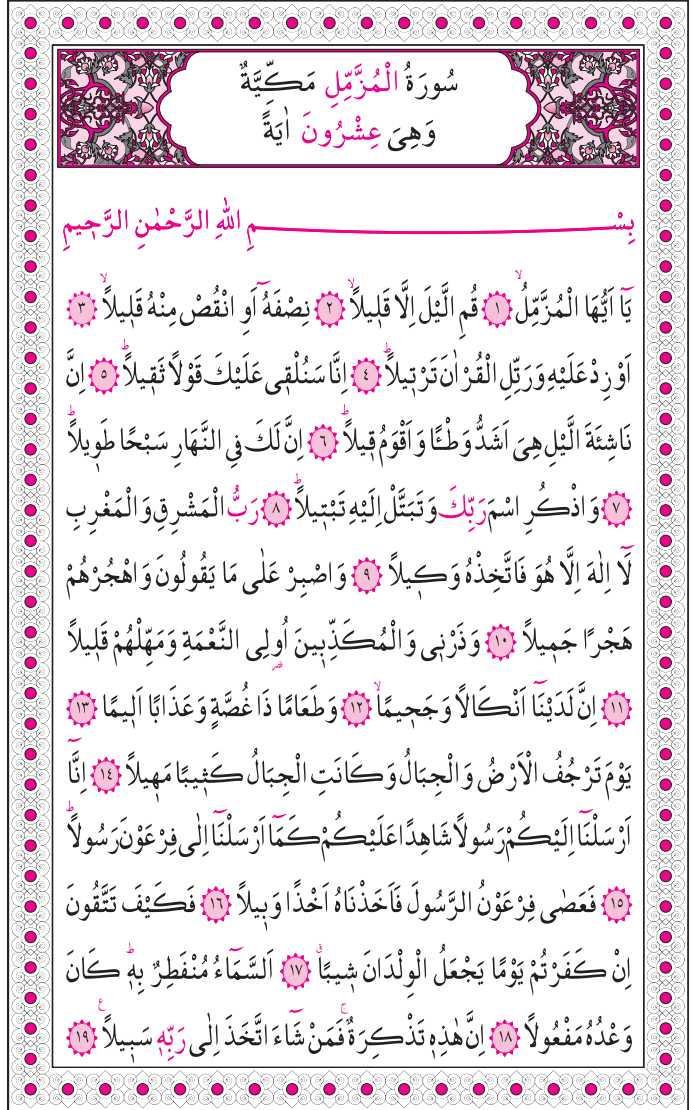 سُورَةُ الْمُزَّمِّلِ مَكِّيَّةٌ
وَهِىَ عِشْرُونَ اٰيَةً
بِسْمِ اللهِ الرَّحْمٰنِ الرَّحٖيمِ
يَٓا اَيُّهَا الْمُزَّمِّلُۙ ﴿١﴾ قُمِ الَّيْلَ اِلَّا قَلٖيلاًۙ ﴿٢﴾ نِصْفَهُٓ اَوِ انْقُصْ مِنْهُ قَلٖيلاًۙ ﴿٣﴾
اَوْ زِدْ عَلَيْهِ وَرَتِّلِ الْقُرْاٰنَ تَرْتٖيلاًؕ ﴿٤﴾ اِنَّا سَنُلْقٖى عَلَيْكَ قَوْلاً ثَقٖيلاًؕ ﴿٥﴾ اِنَّ
نَاشِئَةَ الَّيْلِ هِىَ اَشَدُّ وَطْـًٔا وَاَقْوَمُ قٖيلاًؕ ﴿٦﴾ اِنَّ لَكَ فِى النَّهَارِ سَبْحًا طَوٖيلاًؕ
﴿٧﴾ وَاذْكُرِ اسْمَ رَبِّكَ وَتَبَتَّلْ اِلَيْهِ تَبْتٖيلاًؕ ﴿٨﴾ رَبُّ الْمَشْرِقِ وَالْمَغْرِبِ
لَٓا اِلٰهَ اِلَّا هُوَ فَاتَّخِذْهُ وَكٖيلاً ﴿٩﴾ وَاصْبِرْ عَلٰى مَا يَقُولُونَ وَاهْجُرْهُمْ
هَجْرًا جَمٖيلاً ﴿١٠﴾ وَذَرْنٖى وَالْمُكَذِّبٖينَ اُولِى النَّعْمَةِ وَمَهِّلْهُمْ قَلٖيلاً
﴿١١﴾ اِنَّ لَدَيْنَٓا اَنْكَالاً وَجَحٖيمًاۙ ﴿١٢﴾ وَطَعَامًا ذَا غُصَّةٍ وَعَذَابًا اَلٖيمًا ﴿١٣﴾
يَوْمَ تَرْجُفُ الْاَرْضُ وَالْجِبَالُ وَكَانَتِ الْجِبَالُ كَثٖيبًا مَهٖيلاً ﴿١٤﴾ اِنَّٓا
اَرْسَلْنَٓا اِلَيْكُمْ رَسُولاً شَاهِدًا عَلَيْكُمْ كَمَٓا اَرْسَلْنَٓا اِلٰى فِرْعَوْنَ رَسُولاًؕ
﴿١٥﴾ فَعَصٰى فِرْعَوْنُ الرَّسُولَ فَاَخَذْنَاهُ اَخْذًا وَبٖيلاً ﴿١٦﴾ فَكَيْفَ تَتَّقُونَ
اِنْ كَفَرْتُمْ يَوْمًا يَجْعَلُ الْوِلْدَانَ شٖيبًاۗ ﴿١٧﴾ اَلسَّمَٓاءُ مُنْفَطِرٌ بِهٖؕ كَانَ
وَعْدُهُ مَفْعُولاً ﴿١٨﴾ اِنَّ هٰذِهٖ تَذْكِرَةٌۚ فَمَنْ شَٓاءَ اتَّخَذَ اِلٰى رَبِّهٖ سَبٖيلاًع ﴿١٩﴾